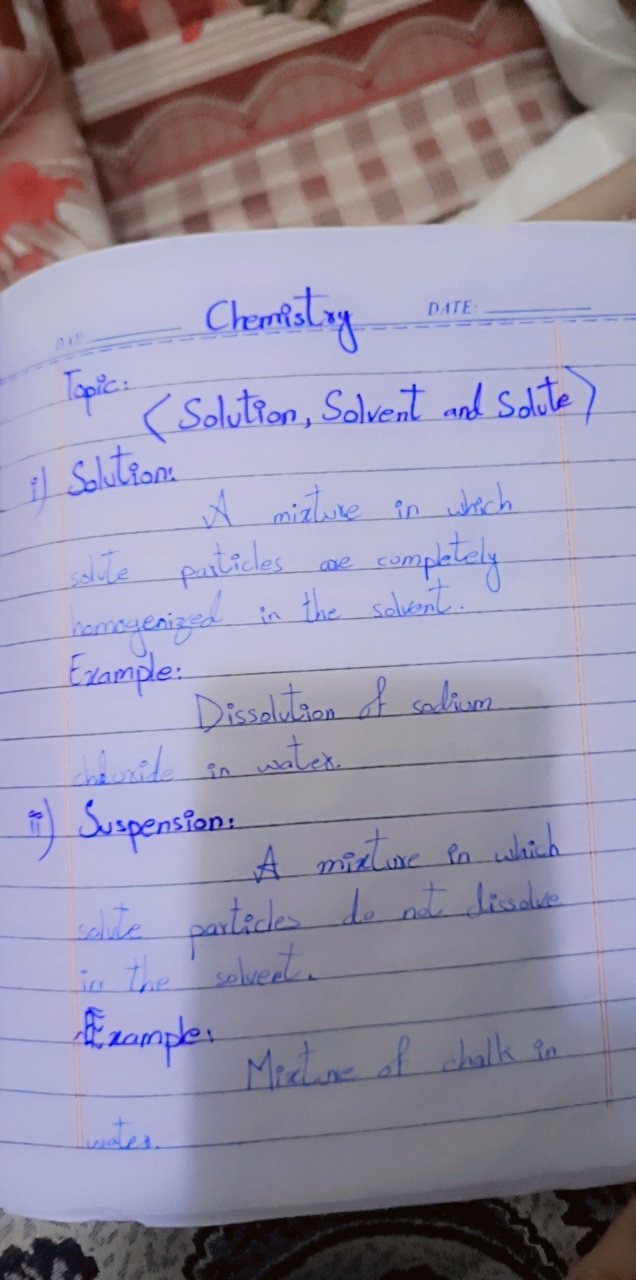 Chemistry
DAY: DATE:
Topic:
(Solution, Solvent and Solute)
i) Solution:
A mixture in which
solute particles are completely
homogenized in the solvent.
Example:
Dissolution of sodium
chloride in water.
ii) Suspension:
A mixture in which
solute particles do not dissolve
in the solvent.
Example:
Mixture of chalk in
water.